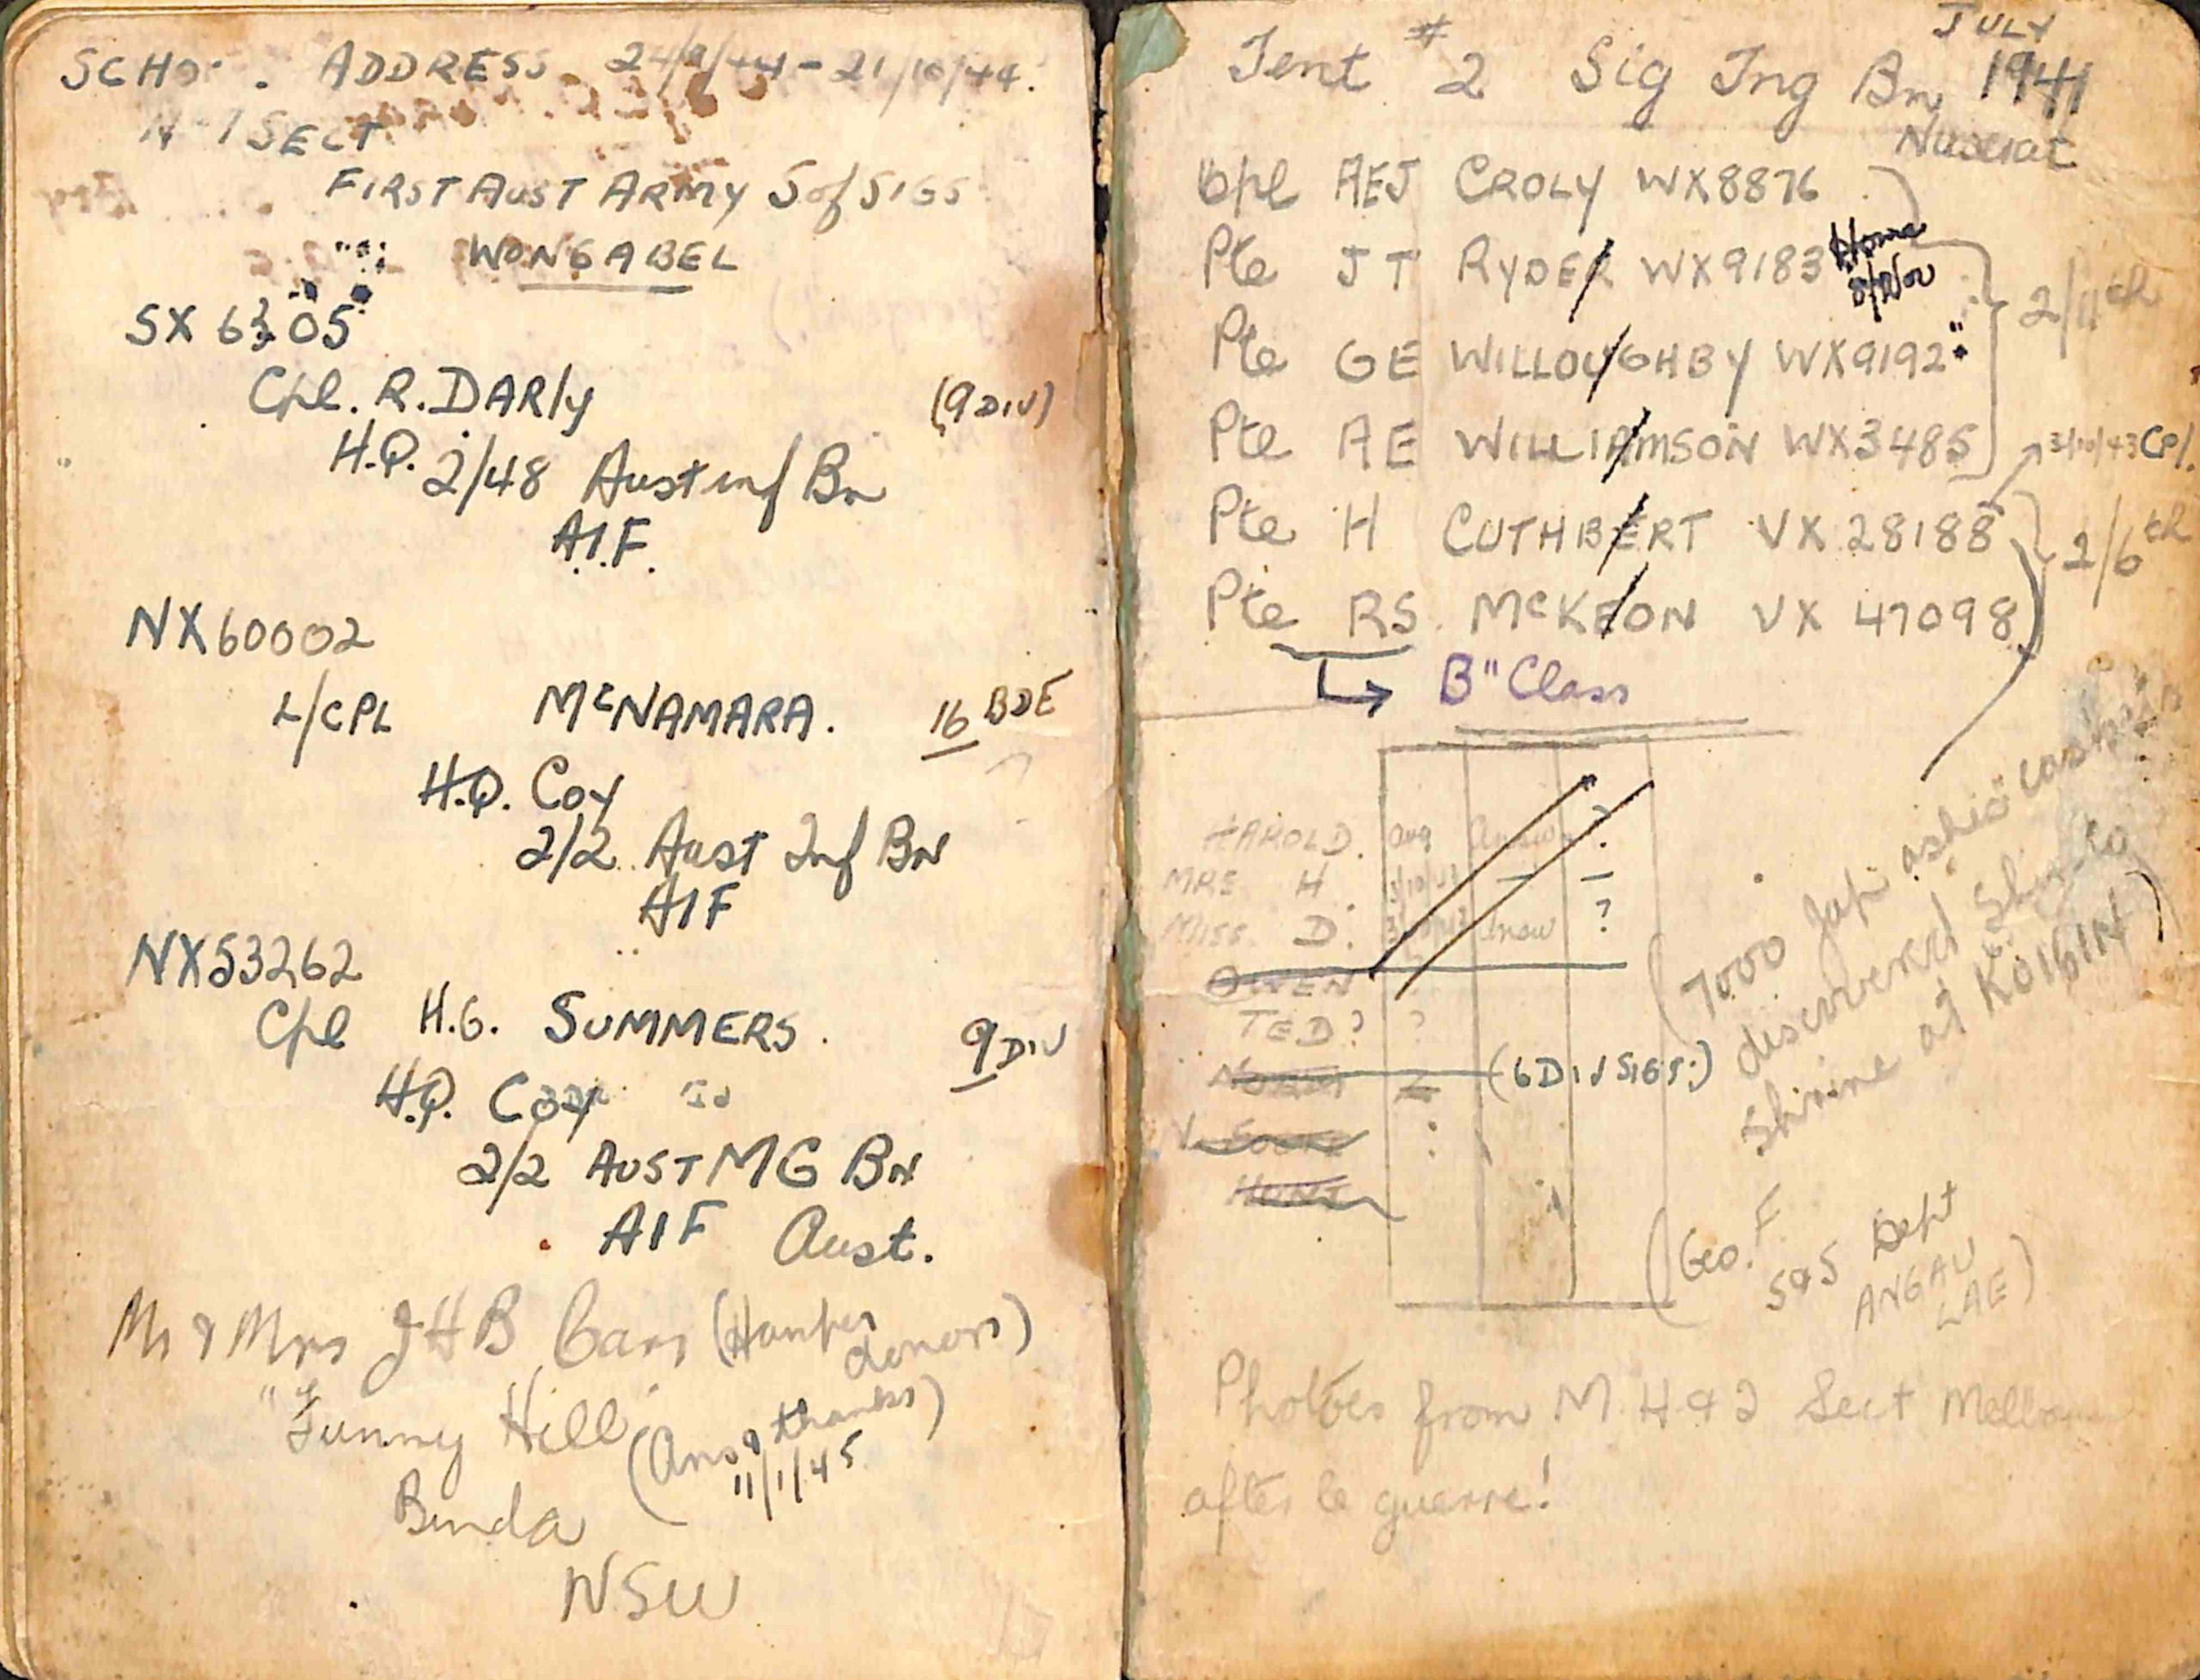 ADDRESS 24/9/44 - 21/10/44.
1 SECT
FIRST AUST ARMY S of SIGS
WONGABEL
SX 6305
Cpl. R. DARly (9 DIV)
H.Q. 2/48 Aust inf Bn
A.I.F.
NX60002
L/CPL McNAMARA. 16 BDE
H.Q. Coy
2/2 Aust Inf BN
AIF
NX53262
Cpl H.G. SUMMERS. 9 DIV
H.Q. Coy
2/2 AUST MG BN
AIF Aust.
Mr & Mrs J H B (Hamper donors)
Hill"
(Ans & thanks)
11/1/45
Binda
NSW
JULY
Tent # 2 Sig Tng Bn 1941
Nuseirat
Cpl AEJ CROLY WX8876
Pte JT RYDER WX9183 Home
2/11th
Pte GE WILLOUGHBY WX9192 "
Pte AE WILLIAMSON WX3485
3/10/43 Cpl.
Pte H CUTHBERT VX 28188
2/6th
Pte RS. McKEON VX 47098
B" Class
HAROLD. Aug
MRS H. 3/10/43 — —
MISS. D. know ?
OWEN
TED? ?
NORM (6 DIV SIGS:)
HUNT
(7000 Jap ashes caskets
discovered
Shrine at KOIBIN)
(Geo. F.
S & S Dept
ANGAU
LAE)
Photoes from M. H & 2 Sect
aftes le guerre!